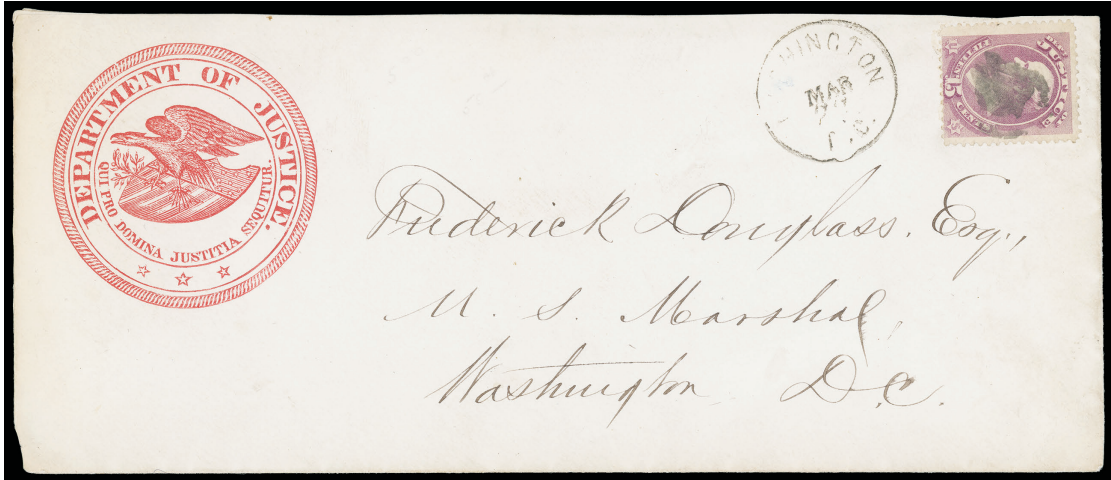 DEPARTMENT OF JUSTICE.
QUI PRO DOMINA JUSTITIA SEQUITUR.
HINGTON
MAR
D.C.
JUSTICE
15
CENTS
Frederick Douglass. Esq.,
U. S. Marshal,
Washington D.C.